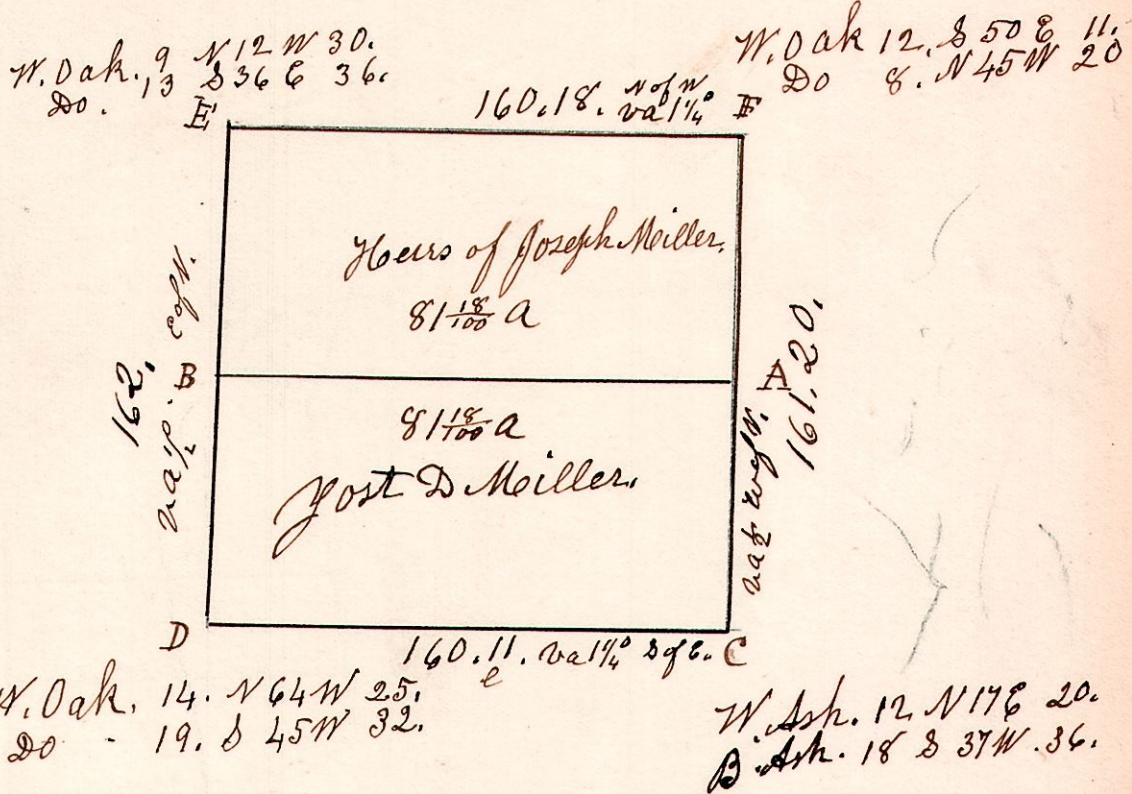 W. Oak. 9 N 12 W 30.
Do. 13 S 36 E 36.
W. Oak 12. S 50 E 11.
Do 8. N 45 W 20
E
160.18. N of W va 1¼°
F
Heirs of Joseph Miller.
81 18/100 a
162.
va ½° E of N.
B
A
161.20.
va ½ W of N.
81 18/100 a
Yost D Miller.
D
160.11. va 1¼° S of E.
C
e
W. Oak. 14. N 64 W 25.
Do - 19. S 45 W 32.
W. Ash. 12 N 17 E 20.
B. Ash. 18 S 37 W. 36.